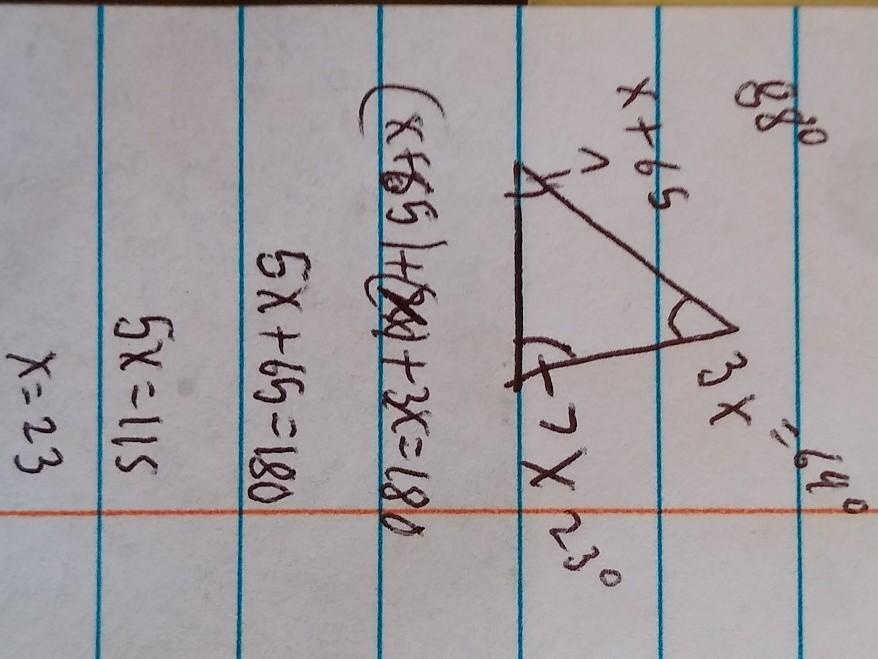 88° 3x = 69°
x+65
x 23°
(x+65)+(x)+3x=180
5x+65=180
5x=115
x=23